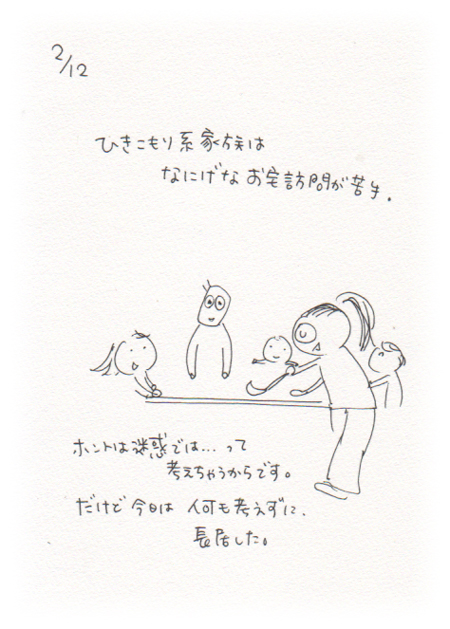 2/12
ひきこもり系家族は
なにげなお宅訪問が苦手.
ホントは迷惑では…って
考えちゃうからです。
だけど今日は 何も考えずに、
長居した。